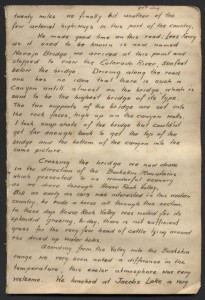 twenty miles we finally hit another of the
few arterial highways in this part of the country.
We made good time on this road. Lees Ferry
as it used to be known is now named
Navajo Bridge. We arrived at this point and
stopped to view the Colorado River
below the bridge. Driving along the road
one has no idea that there is such a
Canyon until almost on the bridge, which is
said to be the highest bridge of its type.
The two supports of the bridge are set into
the rock faces, high up on the canyon walls.
I took many shots of the bridge but couldn't
get far enough back to get the top of the
bridge and the bottom of the canyon into the
same picture.
Crossing the bridge we now drove
in the direction of the Buckskin Mountains,
which presented to us wonderful scenery
as we drove through House Rock Valley.
But as early as very men interested in this
country, he made a horse all through this section.
In those days House Rock Valley was noted for its
splendid grazing, today, there is not sufficient
grass for the very few head of cattle lying around
the dried up water holes.
Ascending from the Valley into the Buckskin
range we very soon noted a difference in the
temperature, this cooler atmosphere was very
welcome. We lunched at Jacobs Lake, a very